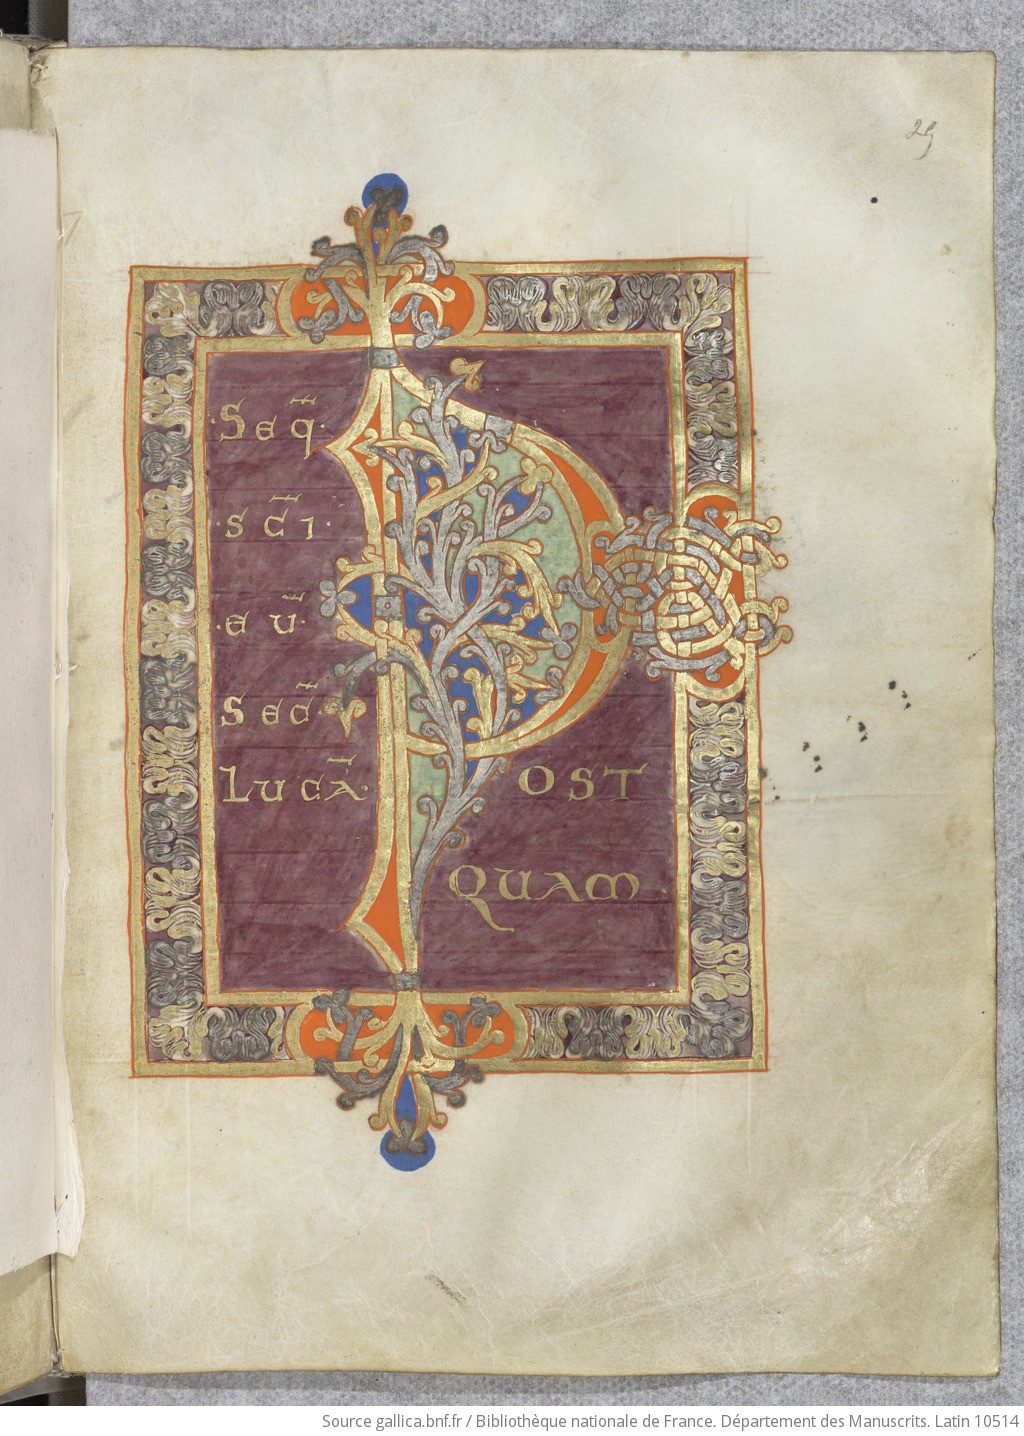 29
·Seq̄·
·sc̄i·
·eū·
Sec̄
Lucā·
POST
QUAM·
Source gallica.bnf.fr / Bibliothèque nationale de France. Département des Manuscrits. Latin 10514